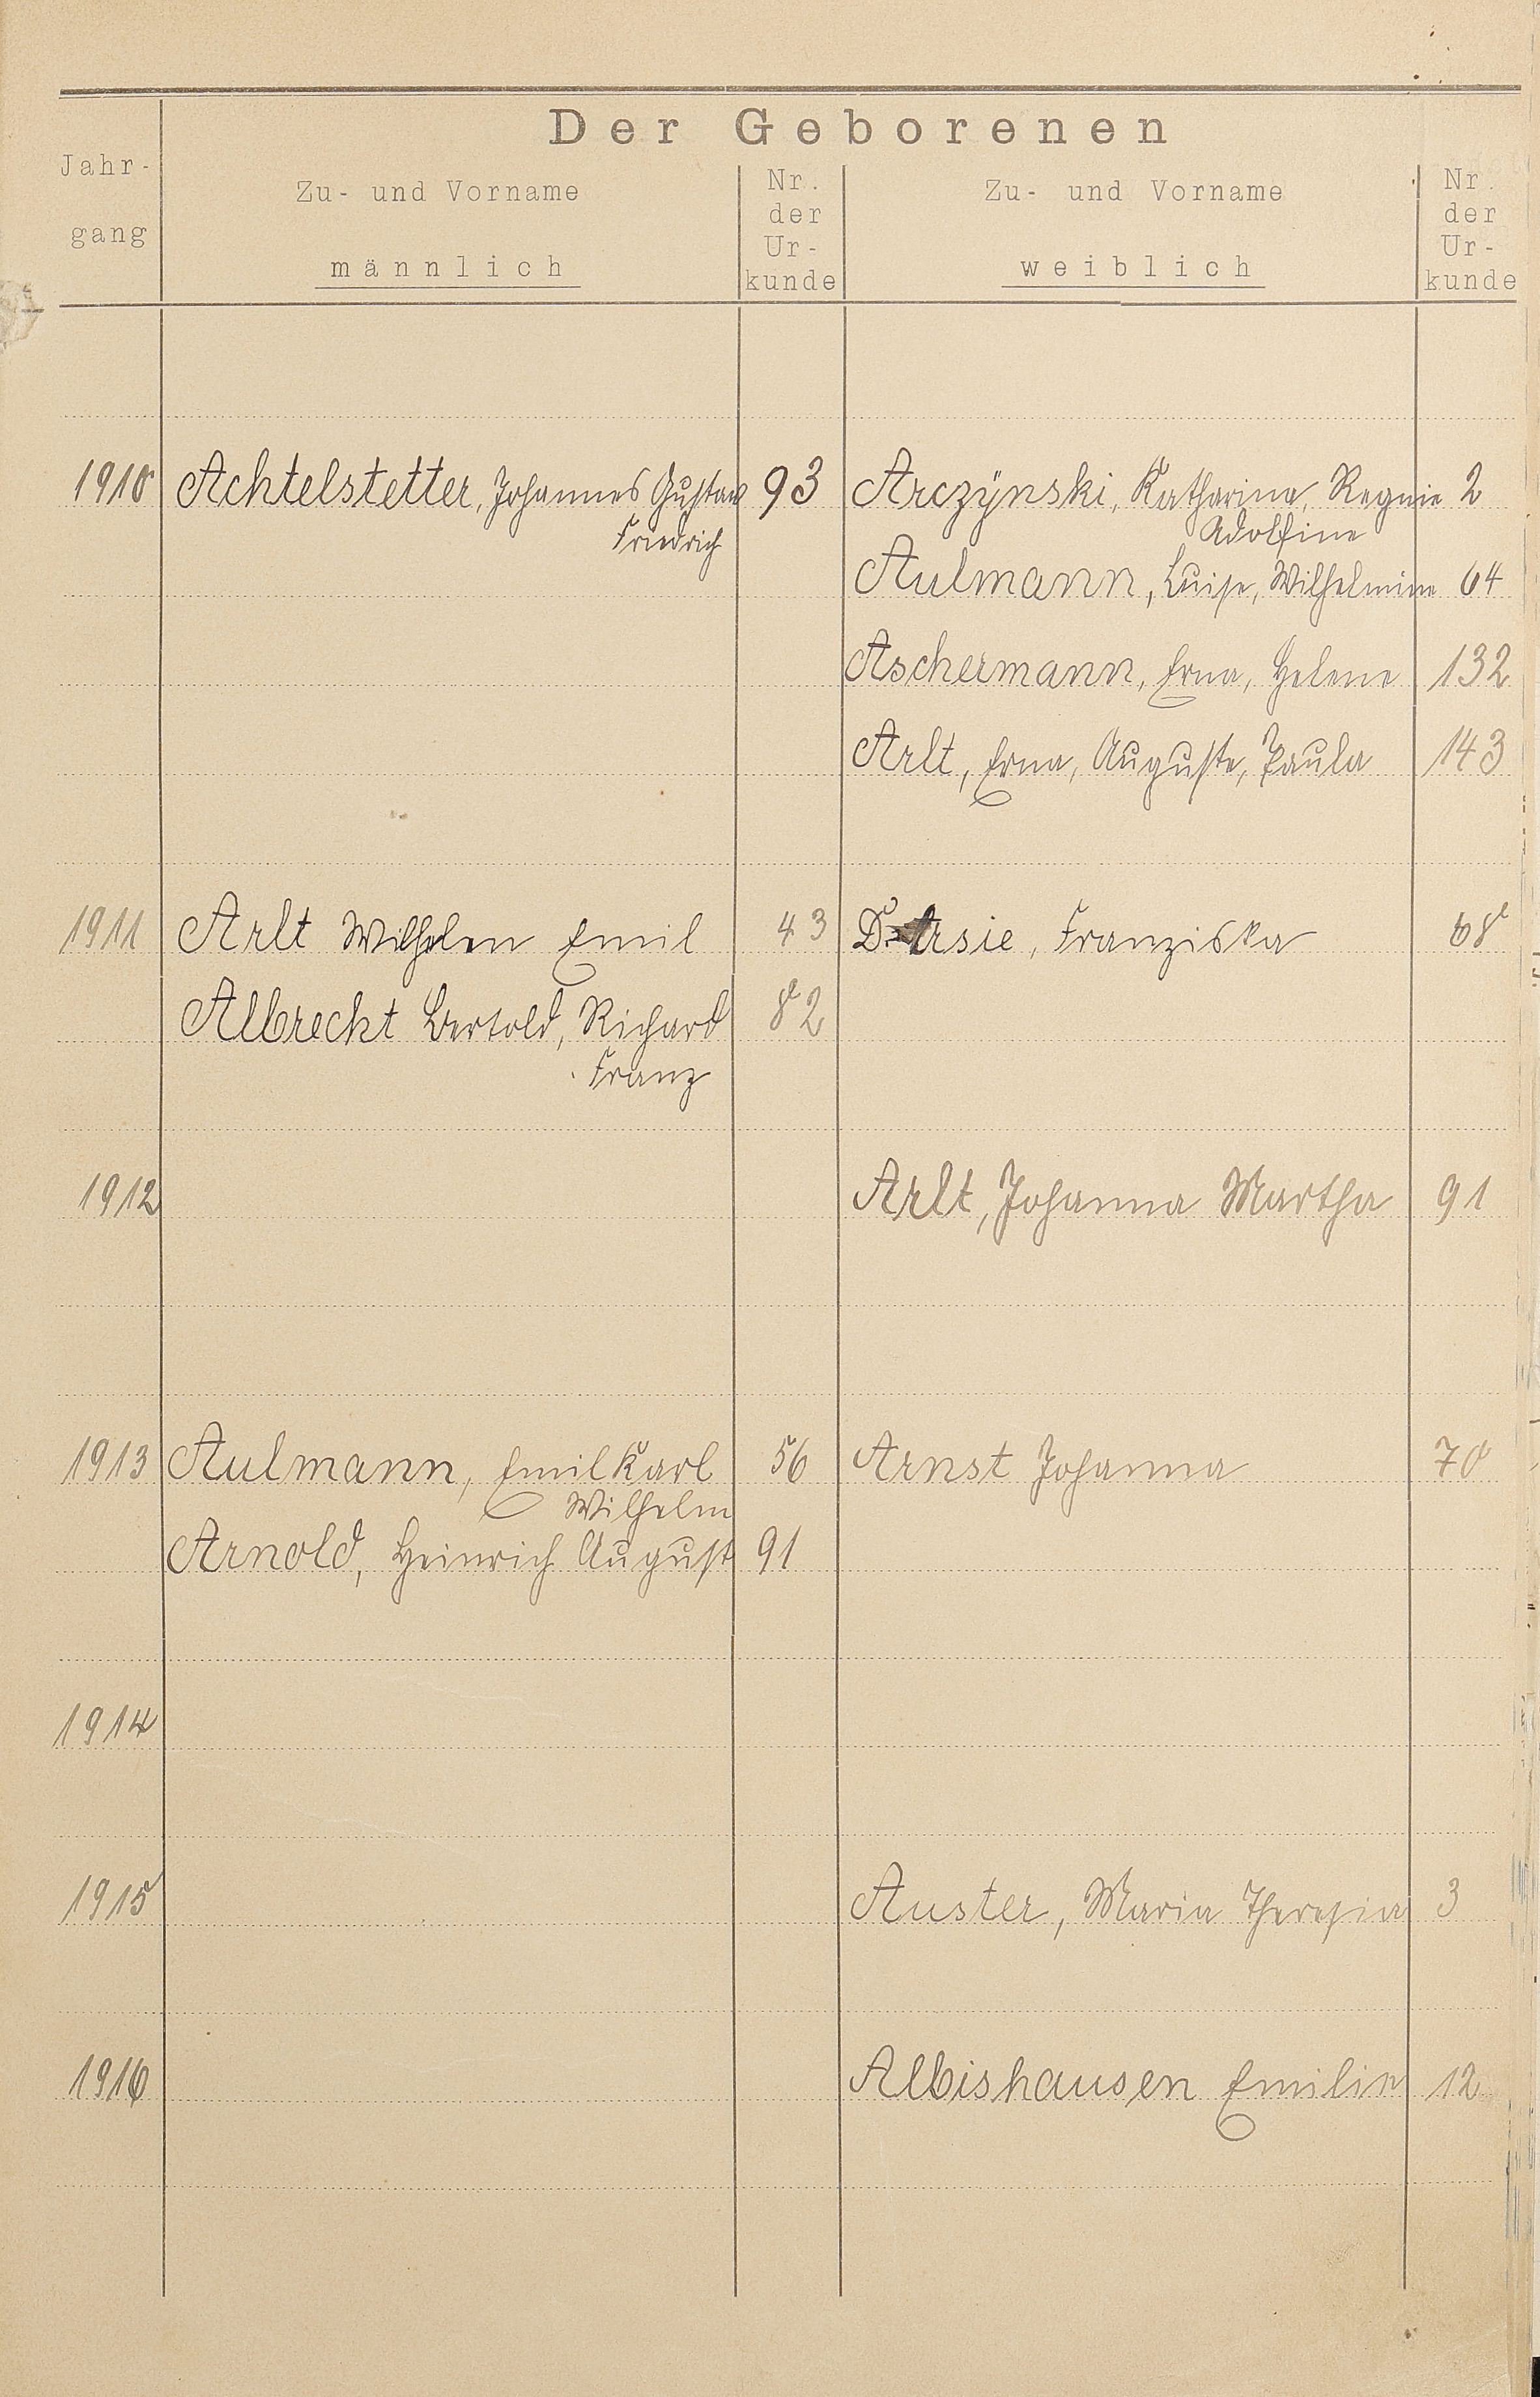 Der Geborenen
Jahr-
gang
Zu- und Vorname
männlich
Nr.
der
Ur-
kunde
Zu- und Vorname
weiblich
Nr.
der
Ur-
kunde
1910 Achtelstetter, Johannes Gustav 93 Arczÿnski, Katharina, Regnie 2
Friedrich Adolfine
Aulmann, Luise, Wilhelmine 64
Aschermann, Erna, Helene 132
Arlt, Erna, Auguste, Paula 143
1911 Arlt Wilhelm Emil 43 D. Arsie, Franziska 68
Albrecht Bertold, Richard 82
Franz
1912 Arlt, Johanna Martha 91
1913 Aulmann, Emil Karl 56 Arnst Johanna 70
Wilhelm
Arnold, Heinrich August 91
1914
1915 Auster, Maria Theresia 3
1916 Albishausen Emilie 12